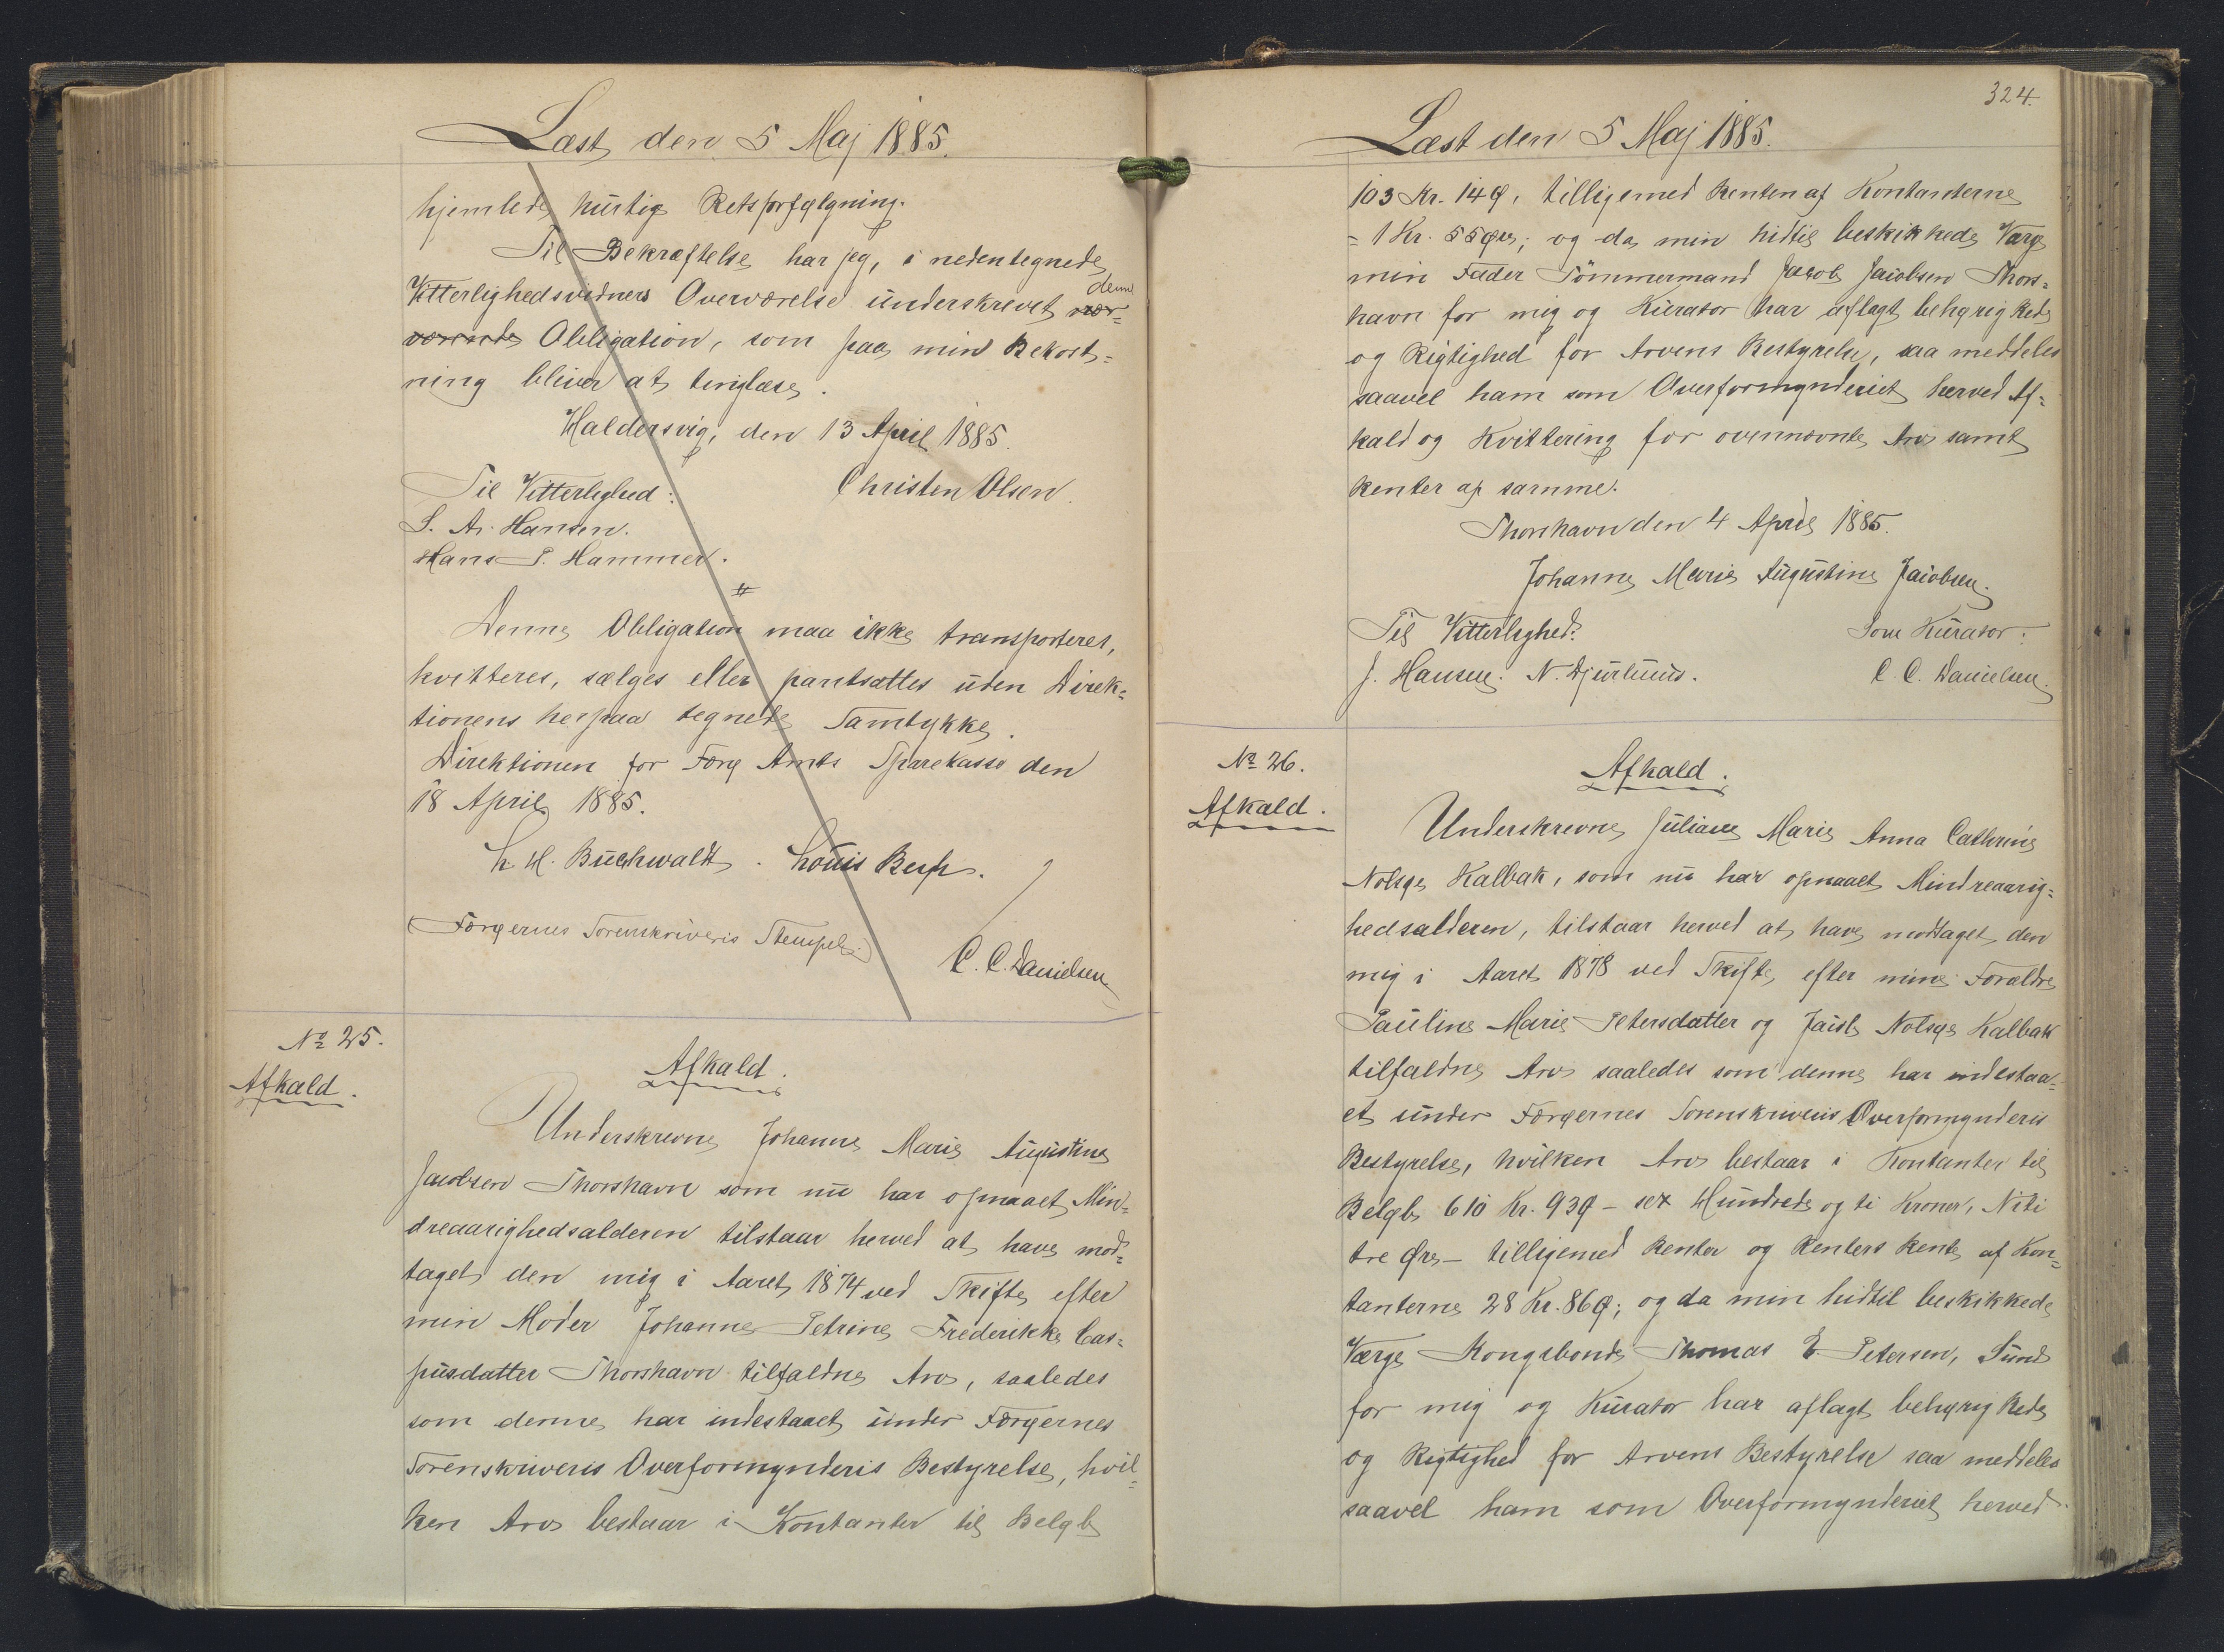 Læst den 5 Maj 1885.
hjemlede hurtig Retsforfølgning.
Til Bekræftelse har jeg, i nedentegnede
Vitterlighedsvidners Overværelse underskrevet nær- denne
værende Obligation, som paa min Bekost=
ning bliver at tinglæse.
Haldersvig, den 13 April 1885.
Til Vitterlighed: Christen Olsen.
S. A. Hansen.
Hans P. Hammer.
Denne Obligation maa ikke transporteres,
kvitteres, sælges eller pantsættes uden Direk=
tionens herpaa tegnede Samtykke.
Direktionen for Færø Amts Sparekasse den
18 April 1885.
H. Buchwaldt. Louis Bergh.
(Færøernes Sorenskriveris Stempel.)
C. C. Danielsen
No 25.
Afkald.
Afkald.
Underskrevne Johanne Marie Augustine
Jacobsen Thorshavn som nu har opnaaet Min=
dreaarighedsalderen tilstaar herved at have mod=
taget den mig i Aaret 1874 ved Skifte efter
min Moder Johanne Petrine Frederikke Cas=
pusdatter Thorshavn tilfaldne Arv, saaledes
som denne har indestaaet under Færøernes
Sorenskriveris Overformynderis Bestyrelse, hvil=
ken Arv bestaar i Kontanter til Beløb
324.
Læst den 5 Maj 1885.
103 Kr. 14 Ø, tilligemed Renten af Kontanterne
= 1 Kr. 55 Øre; og da min hidtil beskikkede Værge
min Fader Tömmermand Jacob Jacobsen Thors=
havn for mig og Kurator har aflagt behørig Rede
og Rigtighed for Arvens Bestyrelse, saa meddeles
saavel ham som Overformynderiet herved Af=
kald og Kvittering for ovennævnte Arv samt
Renter af samme.
Thorshavn den 4 April 1885.
Johanne Marie Augustine Jacobsen.
Til Vitterlighed: Som Kurator:
J. Hansen. N. Djurhuus. C. C. Danielsen.
No 26.
Afkald.
Afkald.
Underskrevne Juliane Marie Anna Cathrine
Nolsøe Kalbak, som nu har opnaaet Mindreaarig=
hedsalderen, tilstaar herved at have modtaget den
mig i Aaret 1878 ved Skifte efter mine Forældre
Pauline Marie Petersdatter og Jacob Nolsøe Kalbak
tilfaldne Arv saaledes som denne har indestaa=
et under Færøernes Sorenskriveris Overformynderis
Bestyrelse, hvilken Arv bestaar i Kontanter til
Beløb 610 Kr. 93 Ø – sex Hundrede og ti Kroner, Niti
tre Øre – tilligemed Renter og Renters Rente af Kon=
tanterne 28 Kr. 86 Ø; og da min hidtil beskikkede
Værge Kongsbonde Thomas E. Petersen, Sund
for mig og Kurator har aflagt behørig Rede
og Rigtighed for Arvens Bestyrelse saa meddeles
saavel ham som Overformynderiet herved